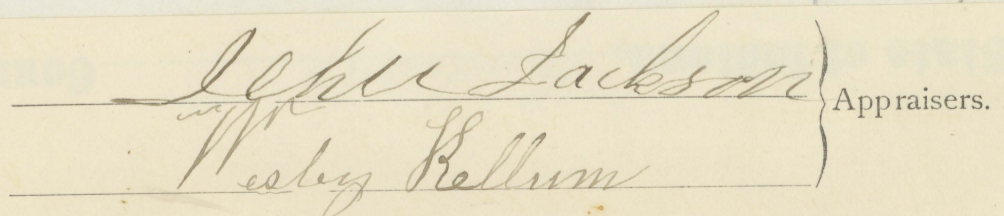 John Jackson
Wesby Kellum
Appraisers.